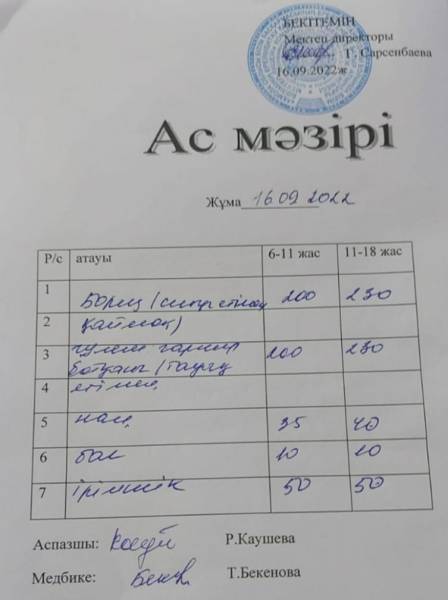 БЕКІТЕМІН
Мектеп директоры
Г. Сарсенбаева
16.09.2022ж
Ас мәзірі
Жұма 16 09 2022
Р/с атауы 6-11 жас 11-18 жас
1 Борщ (сиыр етінен 200 250
2 қаймақ)
3 гуляш гарнир 200 230
ботқасы (тауық
4 етімен
5 нан 35 40
6 бал 10 10
7 ірімшік 50 50
Аспазшы: Р.Каушева
Медбике: Т.Бекенова